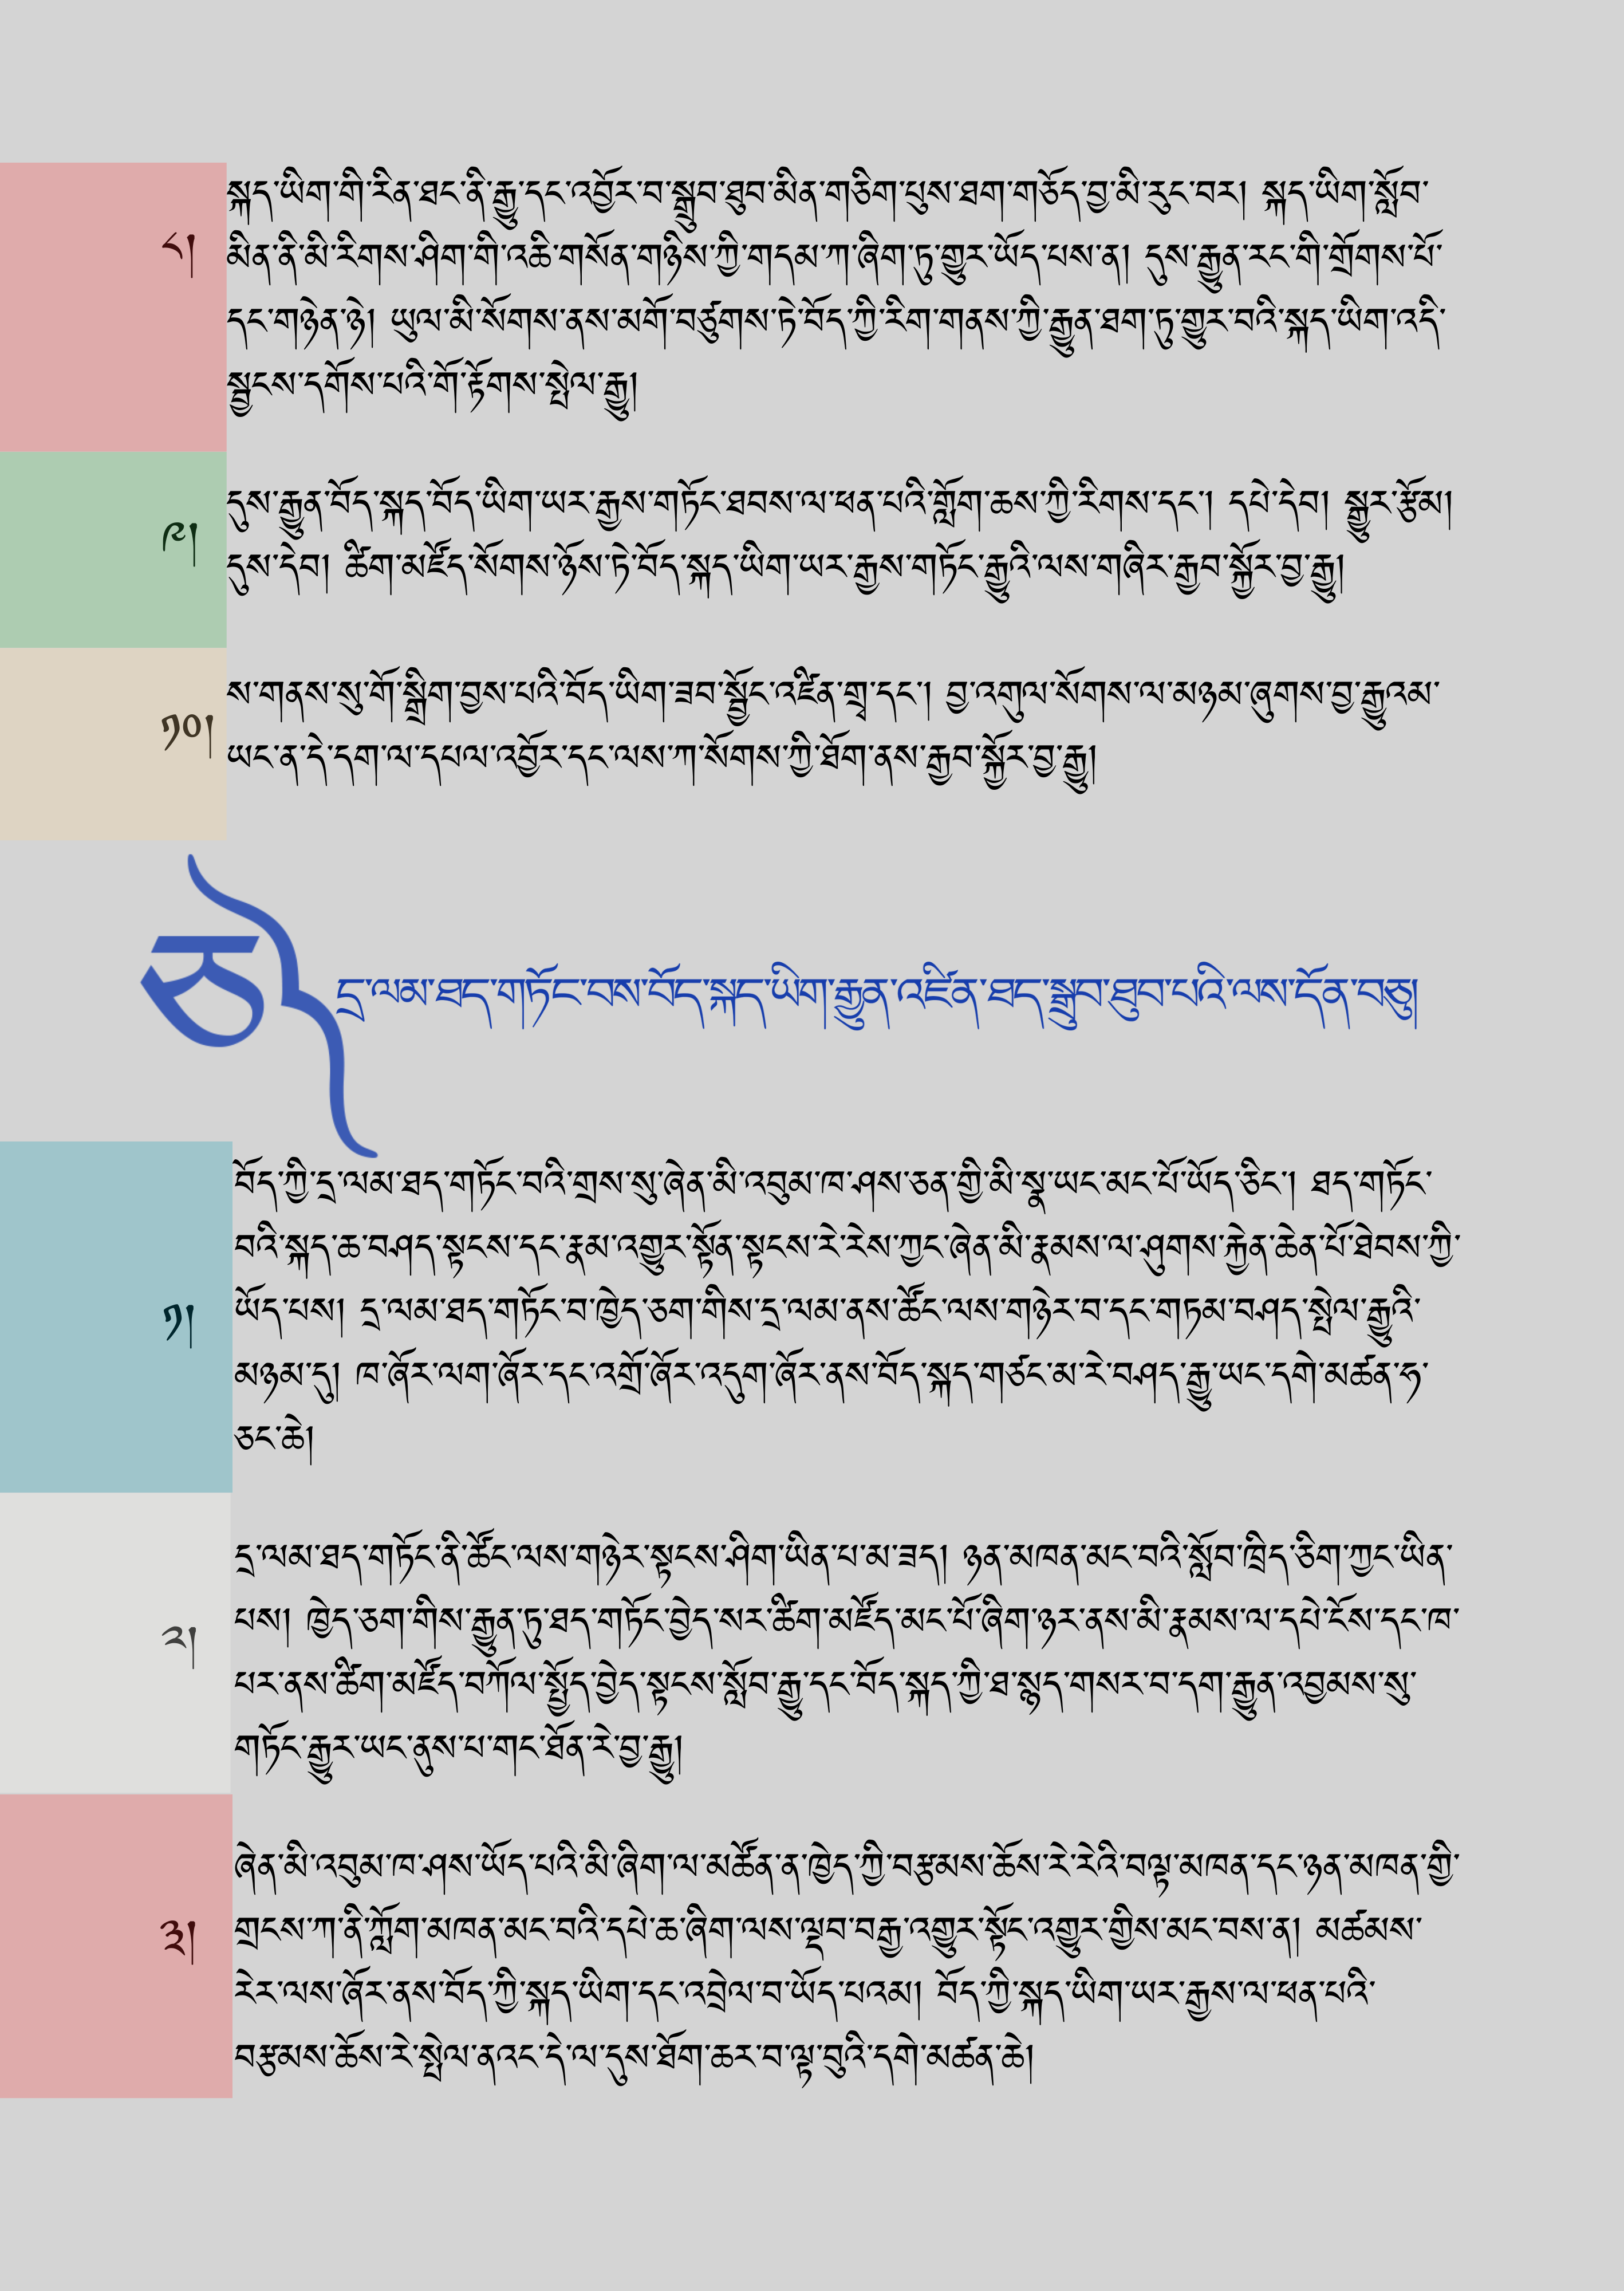 ༨། སྐད་ཡིག་གི་རིན་ཐང་ནི་རྒྱུ་དང་འབྱོར་བ་སྒྲུབ་ཐུབ་མིན་གཅིག་པུས་ཐག་གཅོད་བྱ་མི་རུང་བར། སྐད་ཡིག་སློབ་
མིན་ནི་མི་རིགས་ཤིག་གི་འཆི་གསོན་གཉིས་ཀྱི་གདམ་ཀ་ཞིག་ཏུ་གྱུར་ཡོད་པས་ན། དུས་རྒྱུན་རང་གི་གྲོགས་པོ་
དང་གཉེན་ཉེ། ཡུལ་མི་སོགས་ནས་མགོ་བཙུགས་ཏེ་བོད་ཀྱི་རིག་གནས་ཀྱི་རྒྱུན་ཐག་ཏུ་གྱུར་བའི་སྐད་ཡིག་འདི་
སྦྱངས་དགོས་པའི་གོ་རྟོགས་སྤེལ་རྒྱུ།
༩། དུས་རྒྱུན་བོད་སྐད་བོད་ཡིག་ཡར་རྒྱས་གཏོང་ཐབས་ལ་ཕན་པའི་གློག་ཆས་ཀྱི་རིགས་དང་། དཔེ་དེབ། སྒྱུར་རྩོམ།
དུས་དེབ། ཚིག་མཛོད་སོགས་ཉོས་ཏེ་བོད་སྐད་ཡིག་ཡར་རྒྱས་གཏོང་རྒྱུའི་ལས་གཞིར་རྒྱབ་སྐྱོར་བྱ་རྒྱུ།
༡༠། ས་གནས་སུ་གོ་སྒྲིག་བྱས་པའི་བོད་ཡིག་ཟབ་སྦྱོང་འཛིན་གྲྭ་དང་། བྱ་འགུལ་སོགས་ལ་མཉམ་ཞུགས་བྱ་རྒྱུའམ་
ཡང་ན་དེ་དག་ལ་དཔལ་འབྱོར་དང་ལས་ཀ་སོགས་ཀྱི་ཐོག་ནས་རྒྱབ་སྐྱོར་བྱ་རྒྱུ།
ཅ༽ དྲ་ལམ་ཐད་གཏོང་བས་བོད་སྐད་ཡིག་རྒྱུན་འཛིན་ཐད་སྒྲུབ་ཐུབ་པའི་ལས་དོན་བཅུ།
༡། བོད་ཀྱི་དྲ་ལམ་ཐད་གཏོང་བའི་གྲས་སུ་ཞེན་མི་འབུམ་ཁ་ཤས་ཅན་གྱི་མི་སྣ་ཡང་མང་པོ་ཡོད་ཅིང་། ཐད་གཏོང་
བའི་སྐད་ཆ་བཤད་སྟངས་དང་རྣམ་འགྱུར་སྟོན་སྟངས་རེ་རེས་ཀྱང་ཞེན་མི་རྣམས་ལ་ཤུགས་རྐྱེན་ཆེན་པོ་ཐེབས་ཀྱི་
ཡོད་པས། དྲ་ལམ་ཐད་གཏོང་བ་ཁྱེད་ཅག་གིས་དྲ་ལམ་ནས་ཚོང་ལས་གཉེར་བ་དང་གཏམ་བཤད་སྤེལ་རྒྱུའི་
མཉམ་དུ། ཁ་ཞོར་ལག་ཞོར་དང་འགྲོ་ཞོར་འདུག་ཞོར་ནས་བོད་སྐད་གཙང་མ་རེ་བཤད་རྒྱུ་ཡང་དགེ་མཚན་ཧ་
ཅང་ཆེ།
༢། དྲ་ལམ་ཐད་གཏོང་ནི་ཚོང་ལས་གཉེར་སྟངས་ཤིག་ཡིན་པ་མ་ཟད། ཉན་མཁན་མང་བའི་སློབ་ཁྲིད་ཅིག་ཀྱང་ཡིན་
པས། ཁྱེད་ཅག་གིས་རྒྱུན་ཏུ་ཐད་གཏོང་བྱེད་སར་ཚིག་མཛོད་མང་པོ་ཞིག་ཉར་ནས་མི་རྣམས་ལ་དཔེ་ངོས་དང་ཁ་
པར་ནས་ཚིག་མཛོད་བཀོལ་སྤྱོད་བྱེད་སྟངས་སློབ་རྒྱུ་དང་བོད་སྐད་ཀྱི་ཐ་སྙད་གསར་བ་དག་རྒྱུན་འབྱམས་སུ་
གཏོང་རྒྱུར་ཡང་ནུས་པ་གང་ཐོན་རེ་བྱ་རྒྱུ།
༣། ཞེན་མི་འབུམ་ཁ་ཤས་ཡོད་པའི་མི་ཞིག་ལ་མཚོན་ན་ཁྱེད་ཀྱི་བརྩམས་ཆོས་རེ་རེའི་བལྟ་མཁན་དང་ཉན་མཁན་གྱི་
གྲངས་ཀ་ནི་ཀློག་མཁན་མང་བའི་དཔེ་ཆ་ཞིག་ལས་ལྡབ་བརྒྱ་འགྱུར་སྟོང་འགྱུར་གྱིས་མང་བས་ན། མཚམས་
རེར་ལས་ཞོར་ནས་བོད་ཀྱི་སྐད་ཡིག་དང་འབྲེལ་བ་ཡོད་པའམ། བོད་ཀྱི་སྐད་ཡིག་ཡར་རྒྱས་ལ་ཕན་པའི་
བརྩམས་ཆོས་རེ་སྤེལ་ནའང་དེ་ལ་དུས་ཐོག་ཆར་བ་ལྟ་བུའི་དགེ་མཚན་ཆེ།